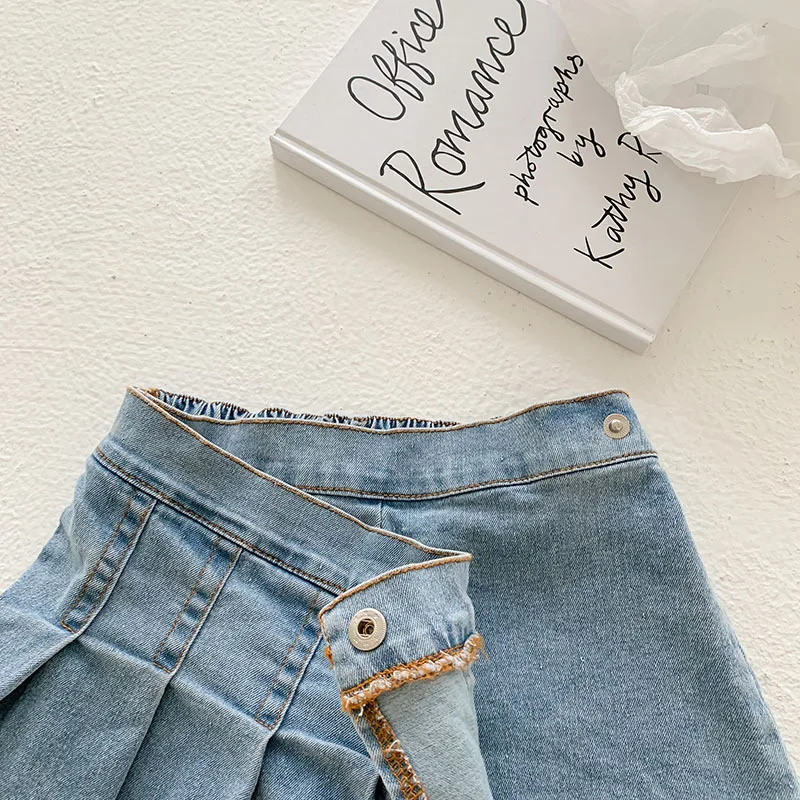 Office
Romance
photographs
by
Kathy R